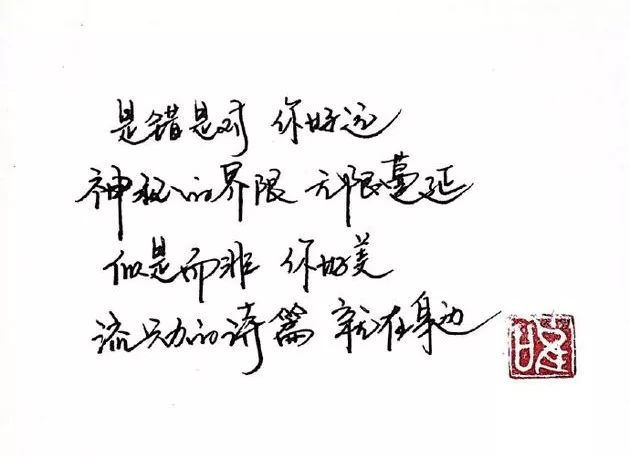 是错是对 你好远
神秘的界限 无限蔓延
似是而非 你好美
流动的诗篇 就在身边